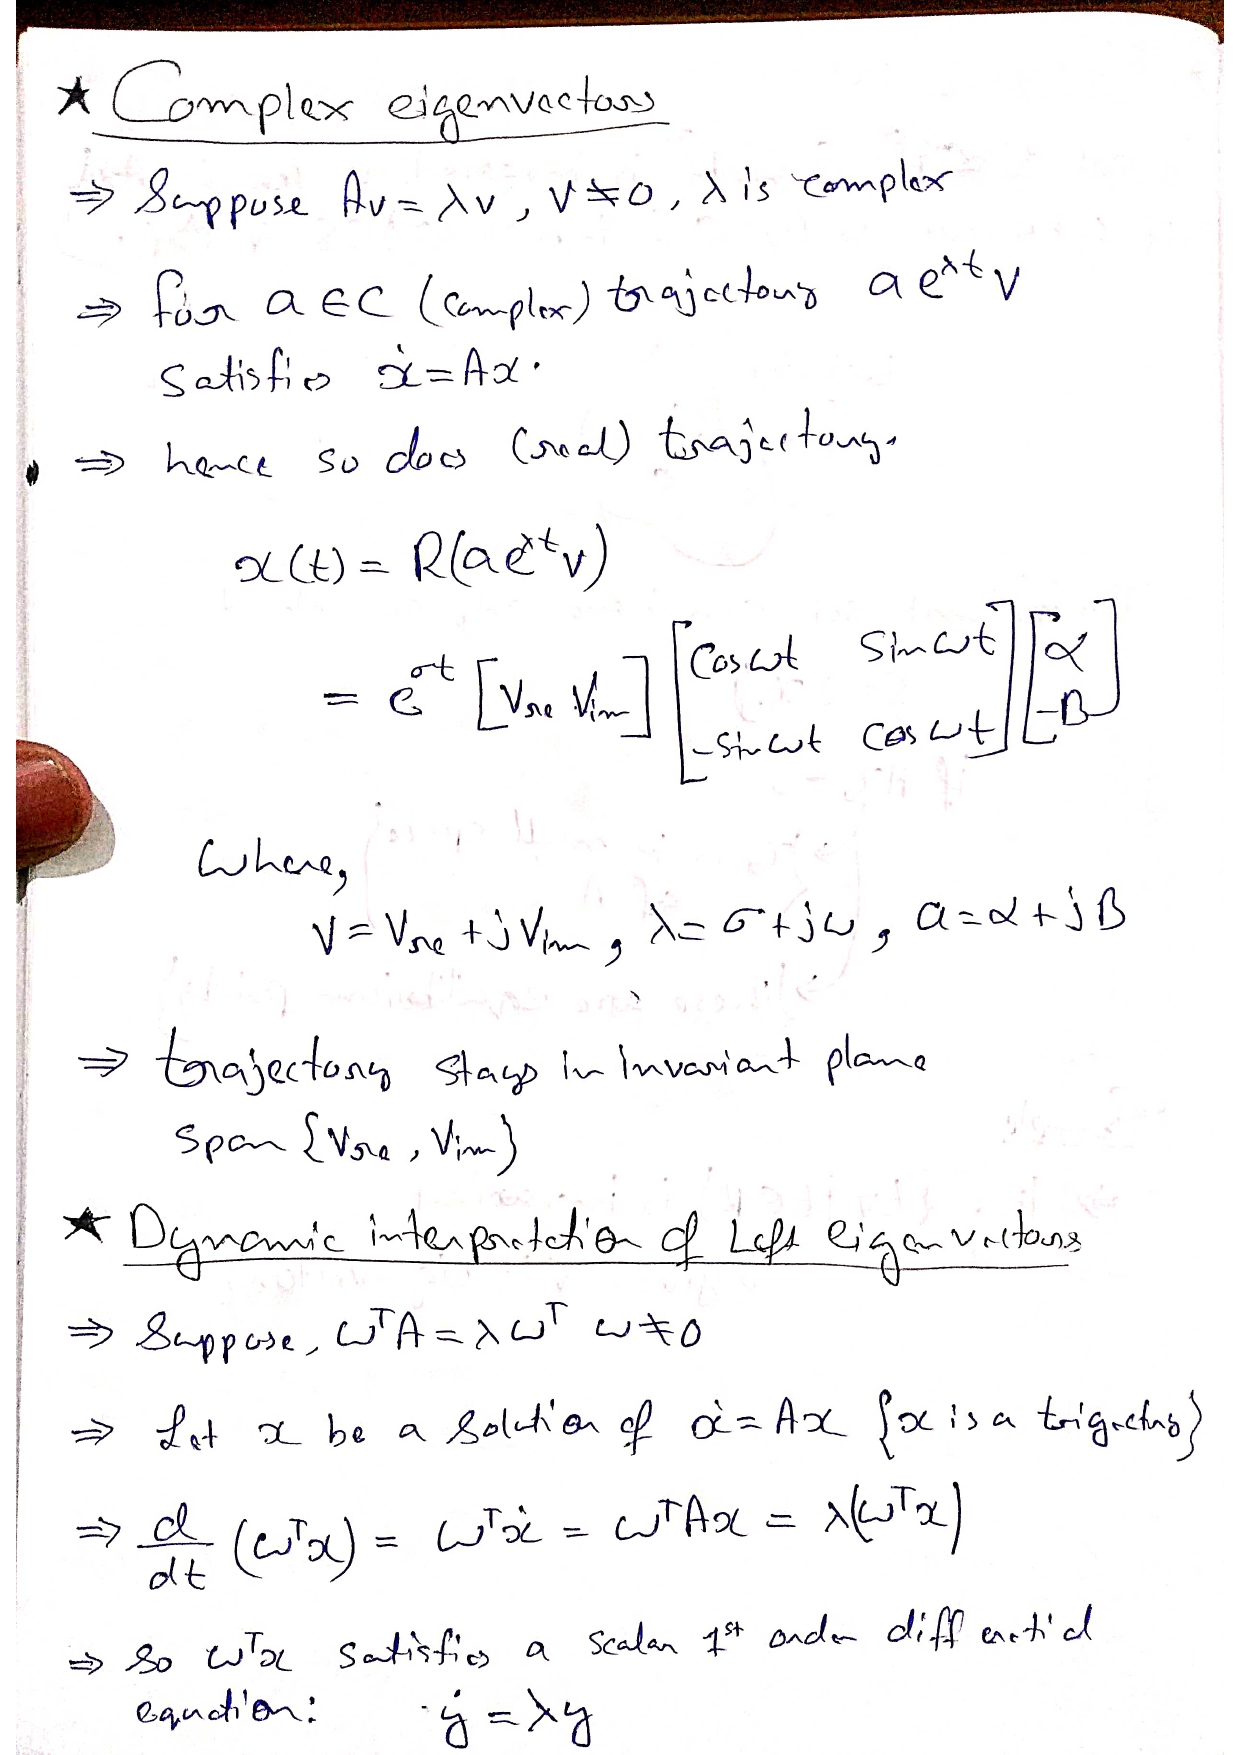 ★ Complex eigenvectors
⇒ Suppose Av = λv, v ≠ 0, λ is complex
⇒ for a ∈ C (complex) trajectory a e^{λt} v
satisfies ẋ = Ax.
⇒ hence so does (real) trajectory.
x(t) = R(a e^{λt} v)
= e^{σt} [Vre Vim] [cos ωt sin ωt; -sin ωt cos ωt] [α; -β]
where,
V = Vre + j Vim, λ = σ + jω, a = α + jβ
⇒ trajectory stays in invariant plane
span {Vre, Vim}
★ Dynamic interpretation of Left eigenvectors
⇒ Suppose, ω^T A = λω^T ω ≠ 0
⇒ Let x be a solution of ẋ = Ax {x is a trajectory}
⇒ d/dt (ω^T x) = ω^T ẋ = ω^T Ax = λ(ω^T x)
⇒ So ω^T x satisfies a scalar 1st order differential
equation: ẏ = λy